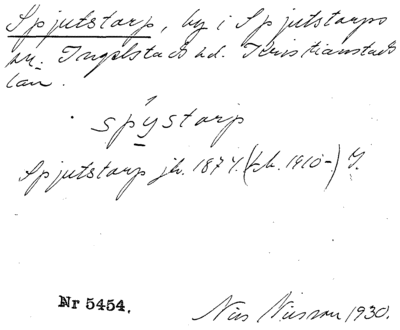 Spjutstorp, by i Spjutstorps
sn. Ingelstads hd. Kristianstads
län.
spystorp
Spjutstorp jh. 1874. (tr. 1910-) J.
Nr 5454.
Nils Nilsson 1930.